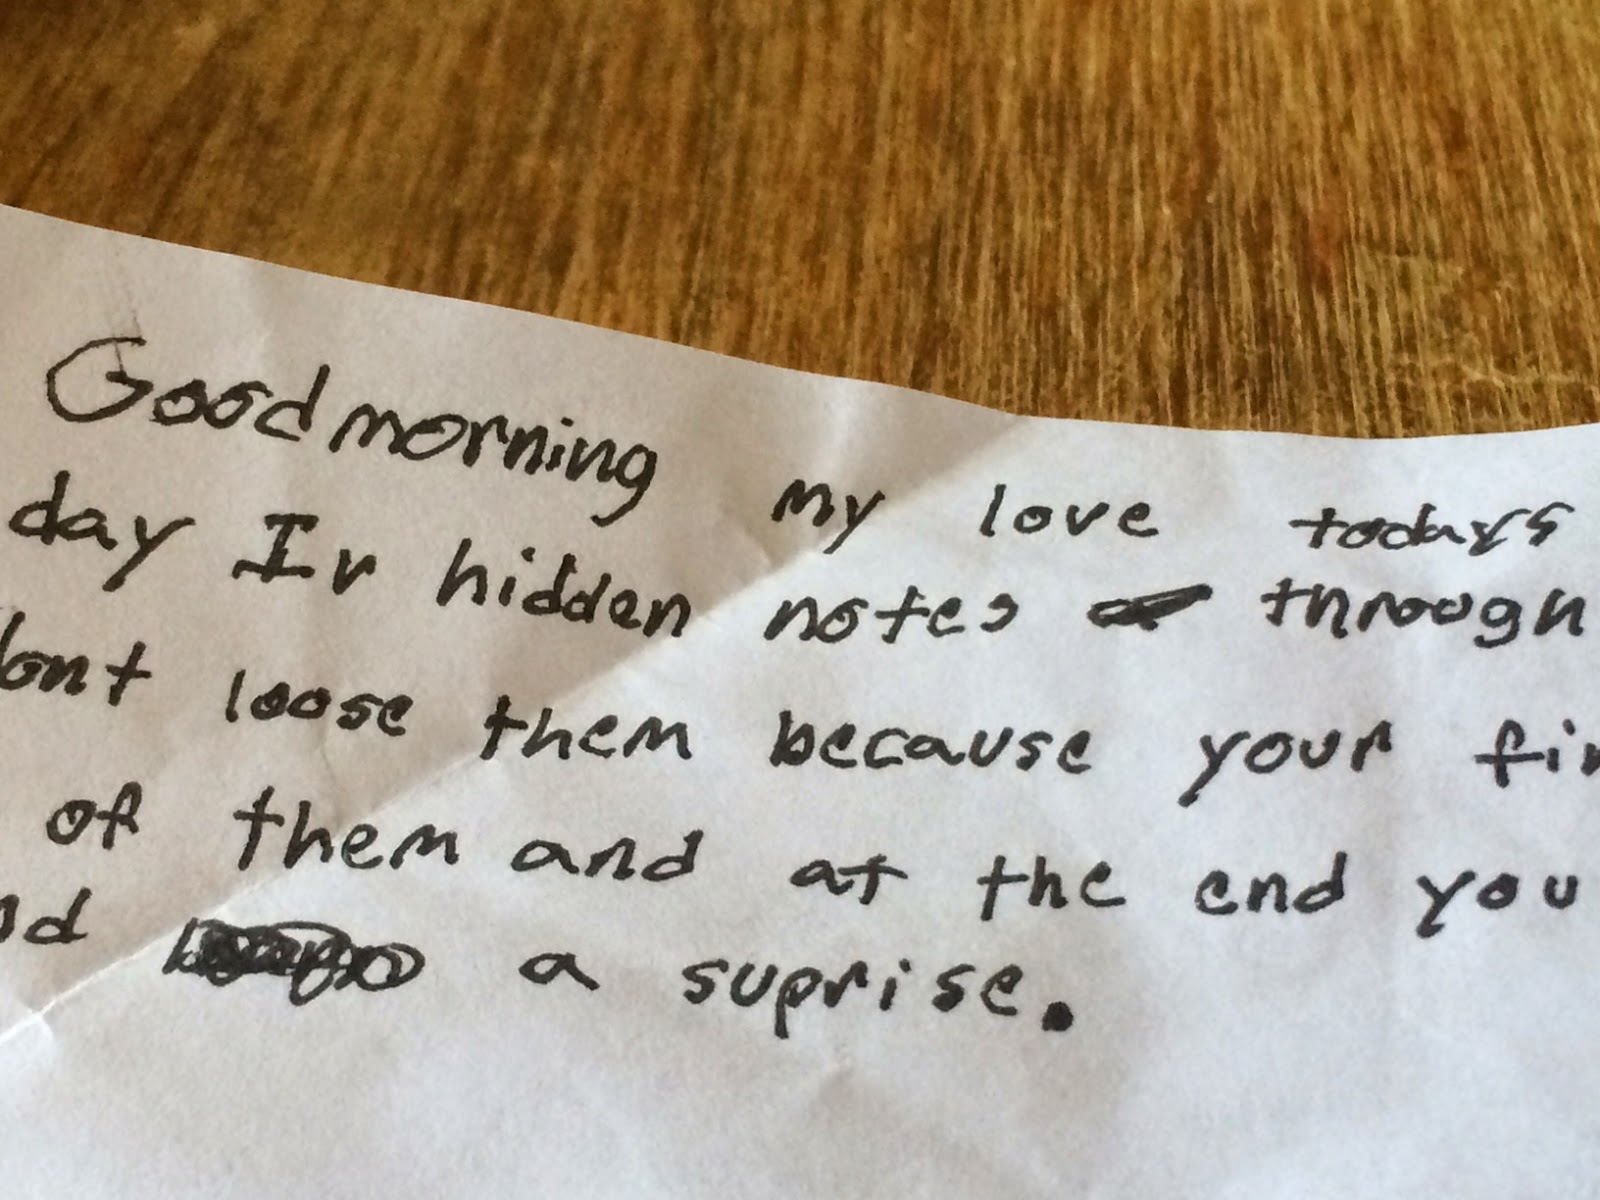 Good morning my love todays
day Iv hidden notes through
dont loose them because your fin
of them and at the end you
nd a suprise.